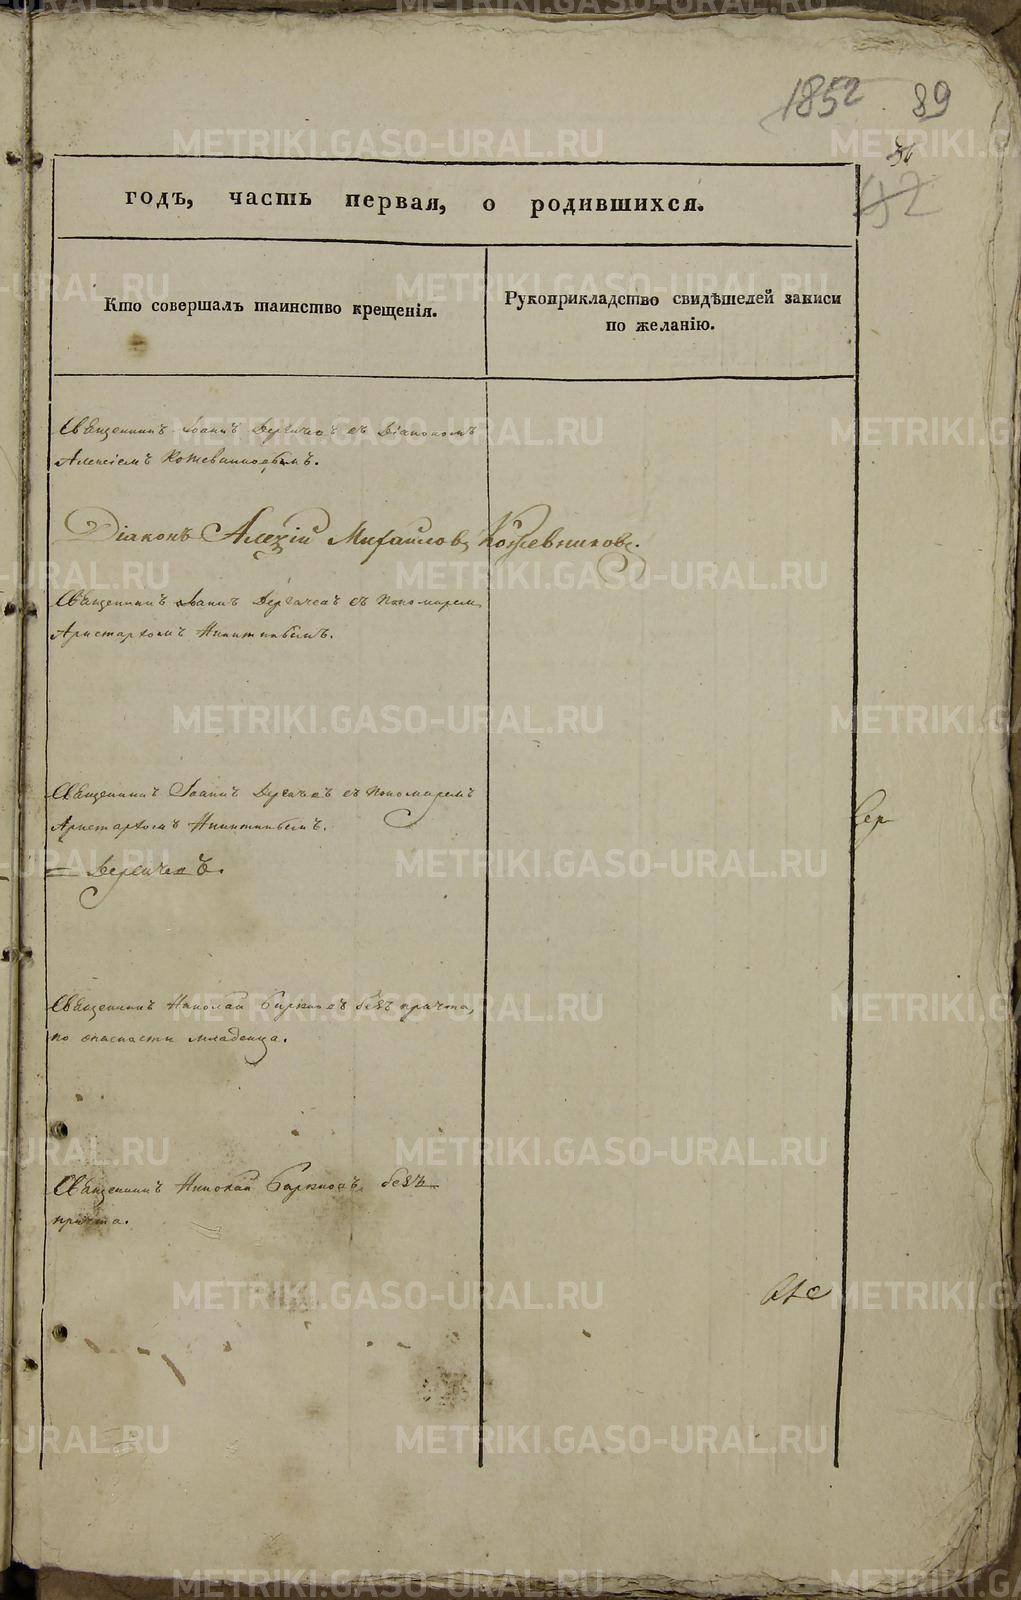 1852
89
42
годъ, часть первая, о родившихся.
Кто совершалъ таинство крещенія.
Рукоприкладство свидѣтелей записи
по желанію.
Священникъ Іоаннъ Дергачевъ съ Діакономъ
Алексіемъ Кожевниковымъ.
Діаконъ Алексій Михайловъ Кожевниковъ.
Священникъ Іоаннъ Дергачевъ съ Пономаремъ
Аристархомъ Никитинымъ.
Священникъ Іоаннъ Дергачевъ съ Пономаремъ
Аристархомъ Никитинымъ.
= Дергачевъ.
Сер
Священникъ Николай Бирюковъ безъ причта,
по опасности младенца.
Священникъ Николай безъ
причта.
METRIKI.GASO-URAL.RU